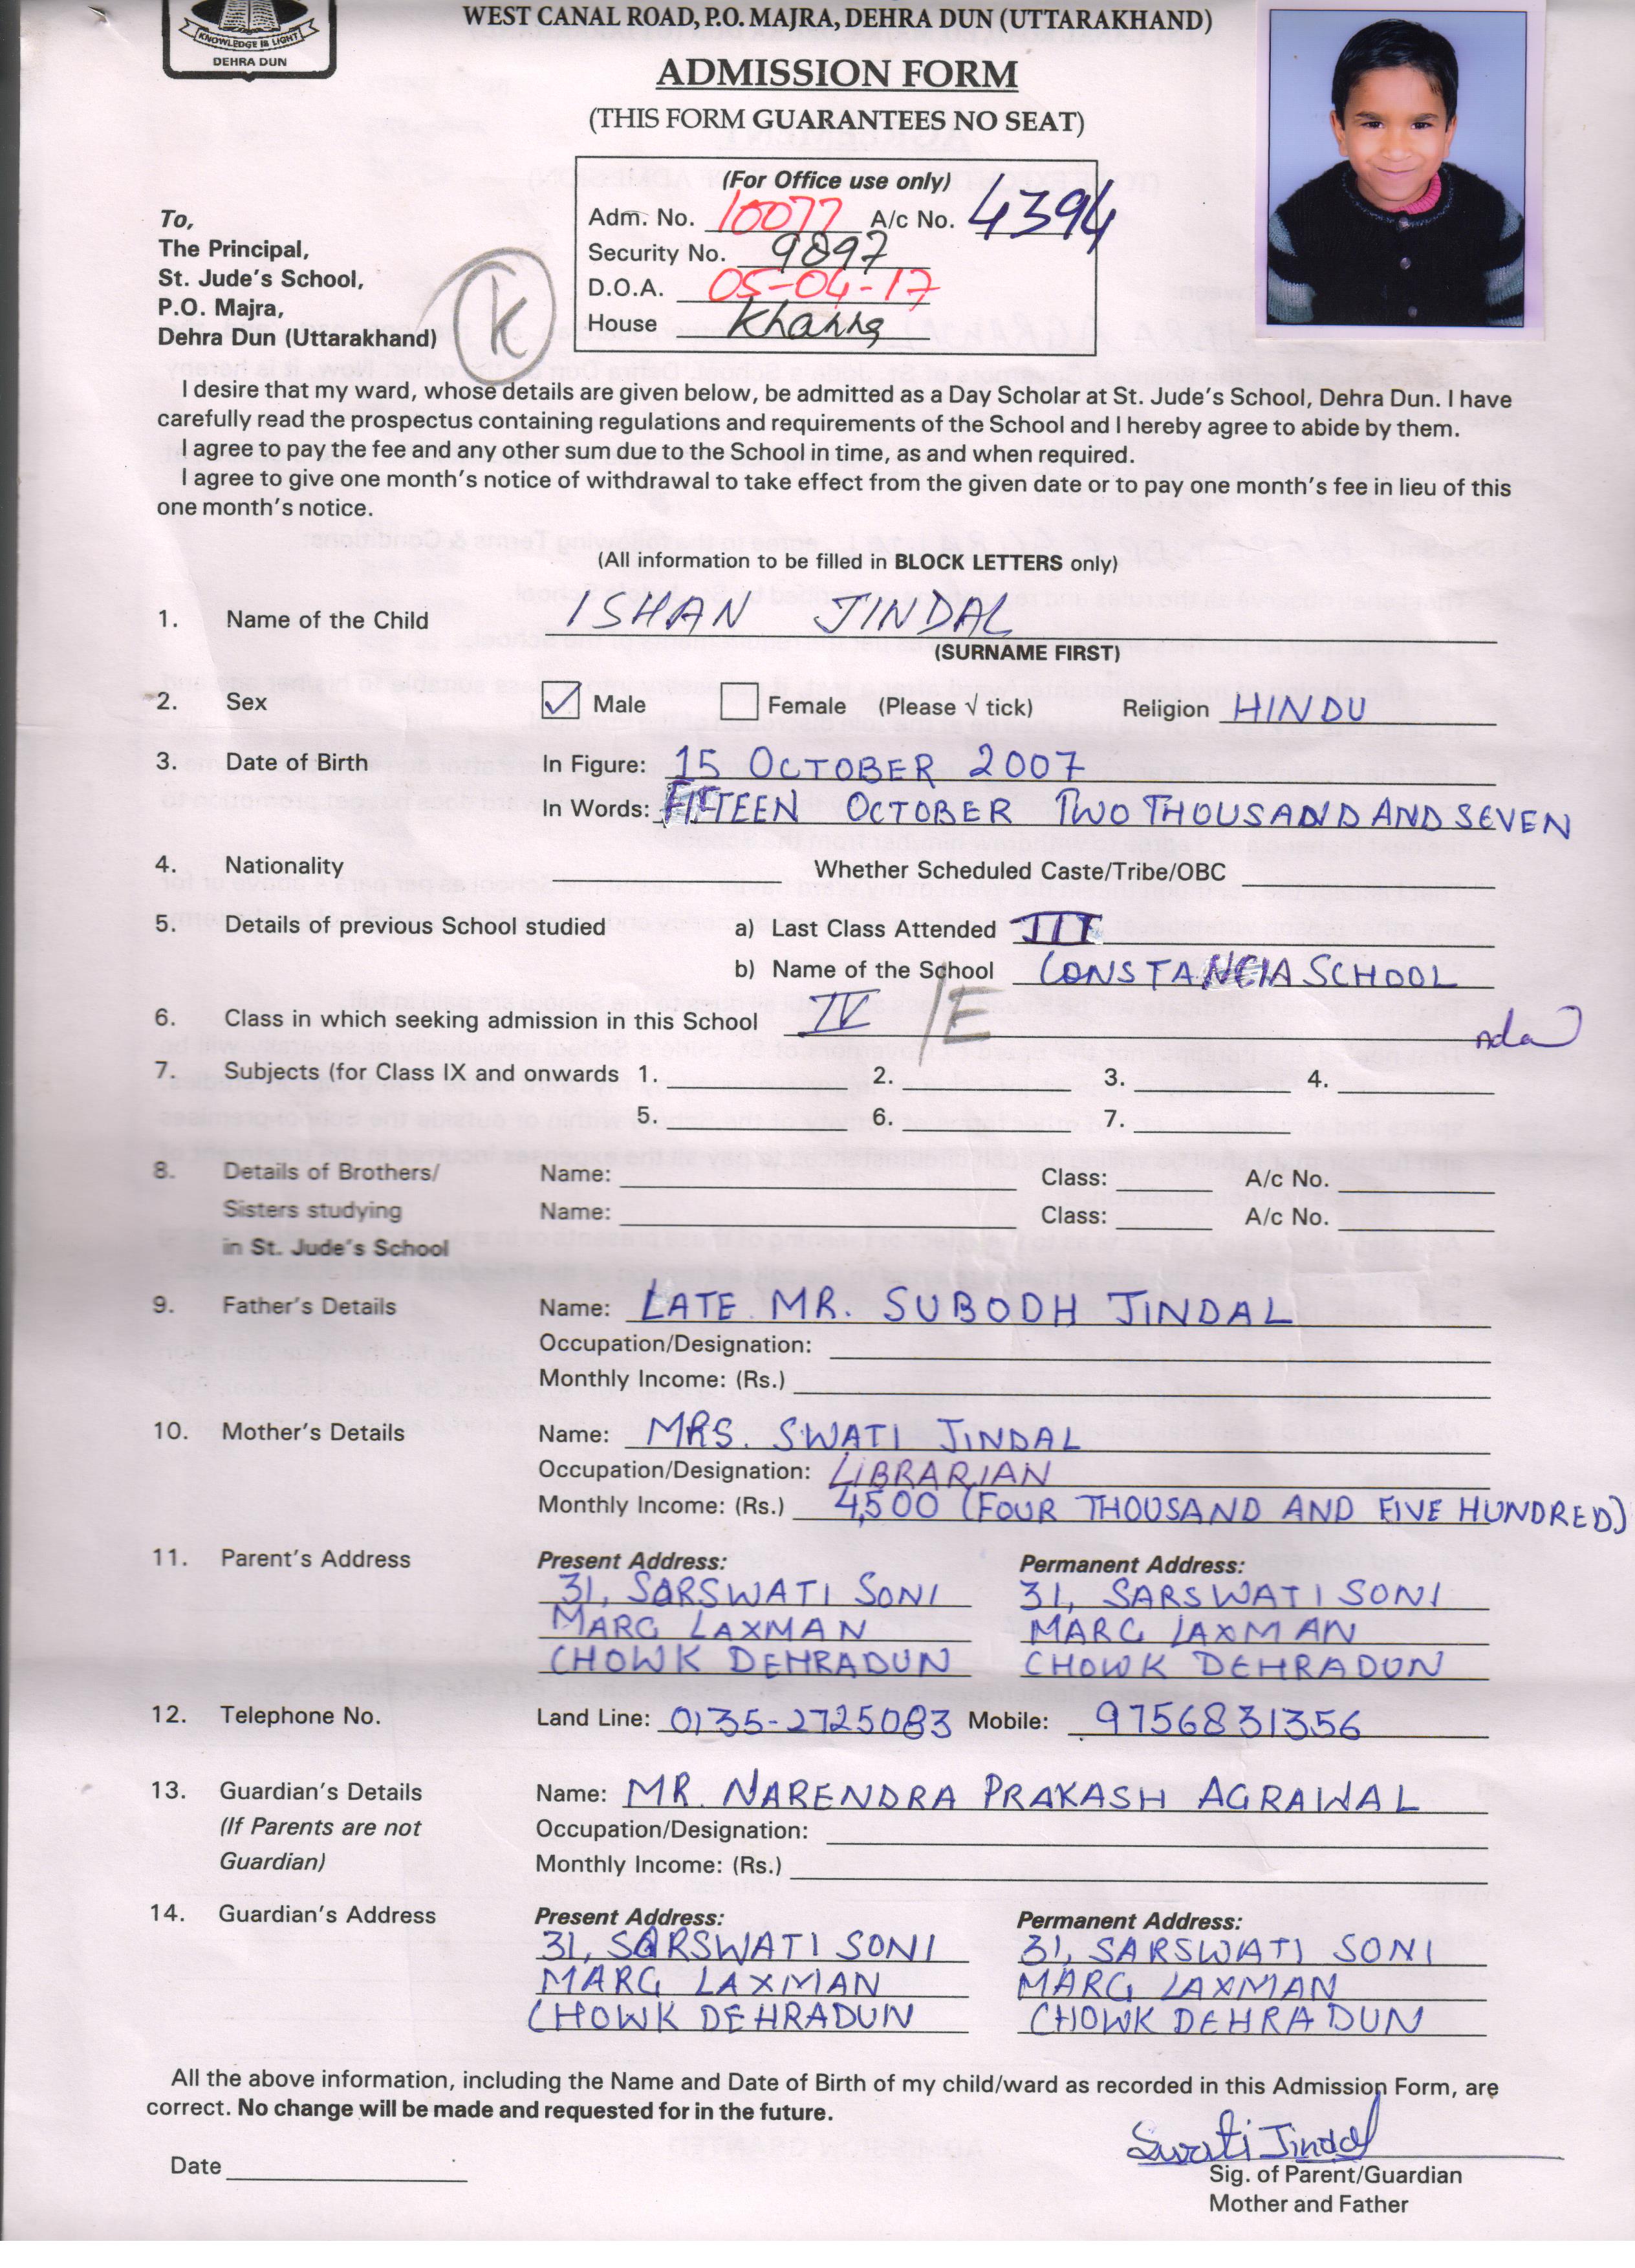 KNOWLEDGE IS LIGHT
DEHRA DUN
WEST CANAL ROAD, P.O. MAJRA, DEHRA DUN (UTTARAKHAND)
ADMISSION FORM
(THIS FORM GUARANTEES NO SEAT)
(For Office use only)
Adm. No. 10077 A/c No. 4394
Security No. 9897
D.O.A. 05-04-17
House Khanna
To,
The Principal,
St. Jude's School,
P.O. Majra,
Dehra Dun (Uttarakhand)
K
I desire that my ward, whose details are given below, be admitted as a Day Scholar at St. Jude's School, Dehra Dun. I have
carefully read the prospectus containing regulations and requirements of the School and I hereby agree to abide by them.
I agree to pay the fee and any other sum due to the School in time, as and when required.
I agree to give one month's notice of withdrawal to take effect from the given date or to pay one month's fee in lieu of this
one month's notice.
(All information to be filled in BLOCK LETTERS only)
1. Name of the Child ISHAN JINDAL
(SURNAME FIRST)
2. Sex Male Female (Please √ tick) Religion HINDU
3. Date of Birth In Figure: 15 OCTOBER 2007
In Words: FIFTEEN OCTOBER TWO THOUSAND AND SEVEN
4. Nationality Whether Scheduled Caste/Tribe/OBC
5. Details of previous School studied a) Last Class Attended III
b) Name of the School CONSTANCIA SCHOOL
6. Class in which seeking admission in this School IV /E
nda
7. Subjects (for Class IX and onwards 1. 2. 3. 4.
5. 6. 7.
8. Details of Brothers/ Name: Class: A/c No.
Sisters studying Name: Class: A/c No.
in St. Jude's School
9. Father's Details Name: LATE MR. SUBODH JINDAL
Occupation/Designation:
Monthly Income: (Rs.)
10. Mother's Details Name: MRS. SWATI JINDAL
Occupation/Designation: LIBRARIAN
Monthly Income: (Rs.) 4,500 (FOUR THOUSAND AND FIVE HUNDRED)
11. Parent's Address Present Address: Permanent Address:
31, SARSWATI SONI 31, SARSWATI SONI
MARG LAXMAN MARG LAXMAN
CHOWK DEHRADUN CHOWK DEHRADUN
12. Telephone No. Land Line: 0135-2725083 Mobile: 9756831356
13. Guardian's Details Name: MR. NARENDRA PRAKASH AGRAWAL
(If Parents are not Occupation/Designation:
Guardian) Monthly Income: (Rs.)
14. Guardian's Address Present Address: Permanent Address:
31, SARSWATI SONI 31, SARSWATI SONI
MARG LAXMAN MARG LAXMAN
CHOWK DEHRADUN CHOWK DEHRADUN
All the above information, including the Name and Date of Birth of my child/ward as recorded in this Admission Form, are
correct. No change will be made and requested for in the future.
Swati Jindal
Date
Sig. of Parent/Guardian
Mother and Father